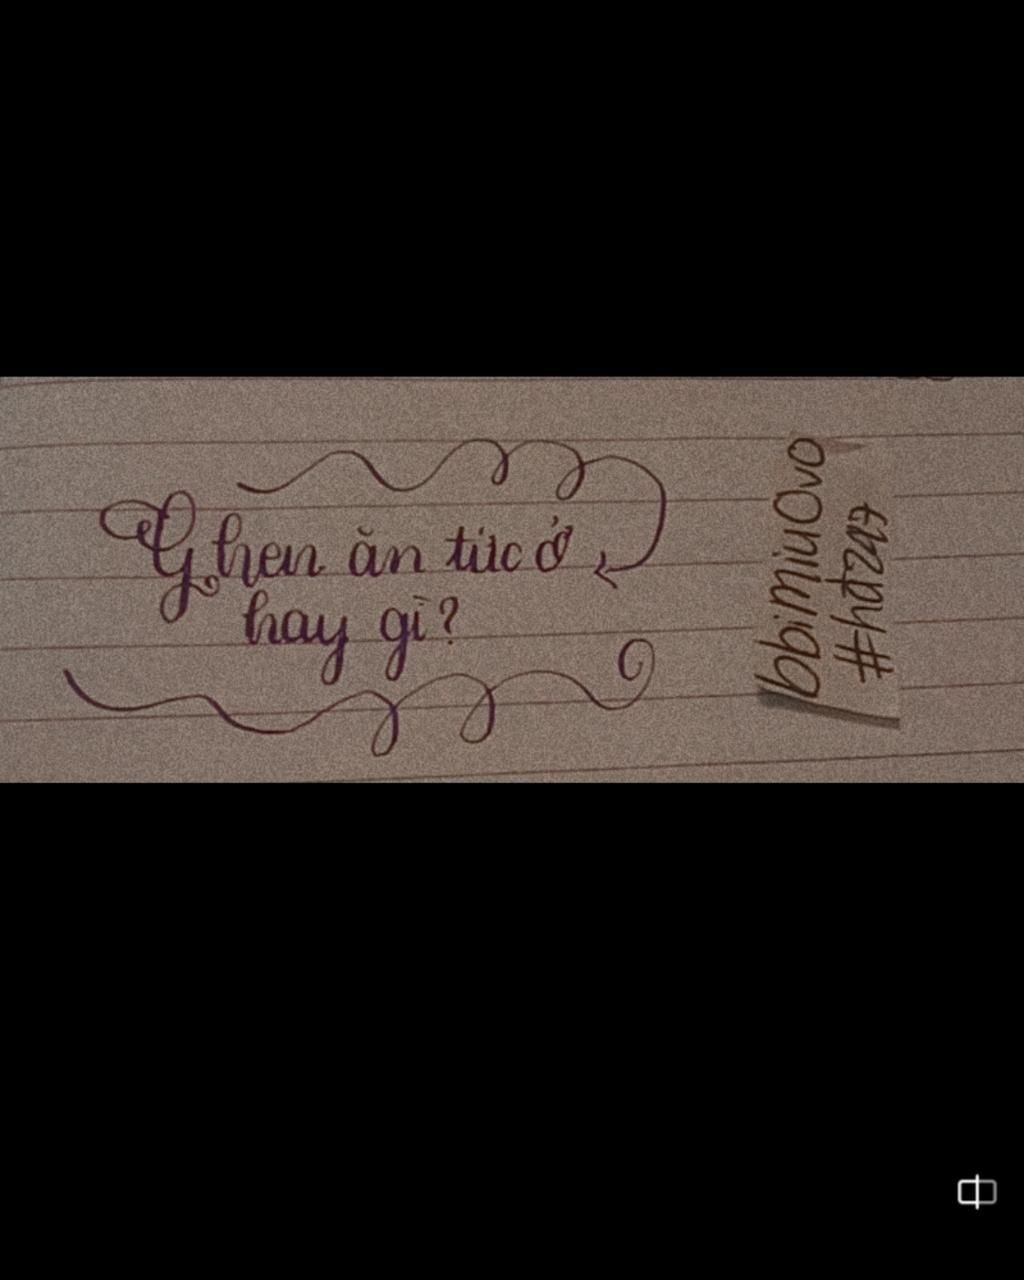 Ghen ăn tức ở
hay gì?
bbimiu0vo
#hdza7